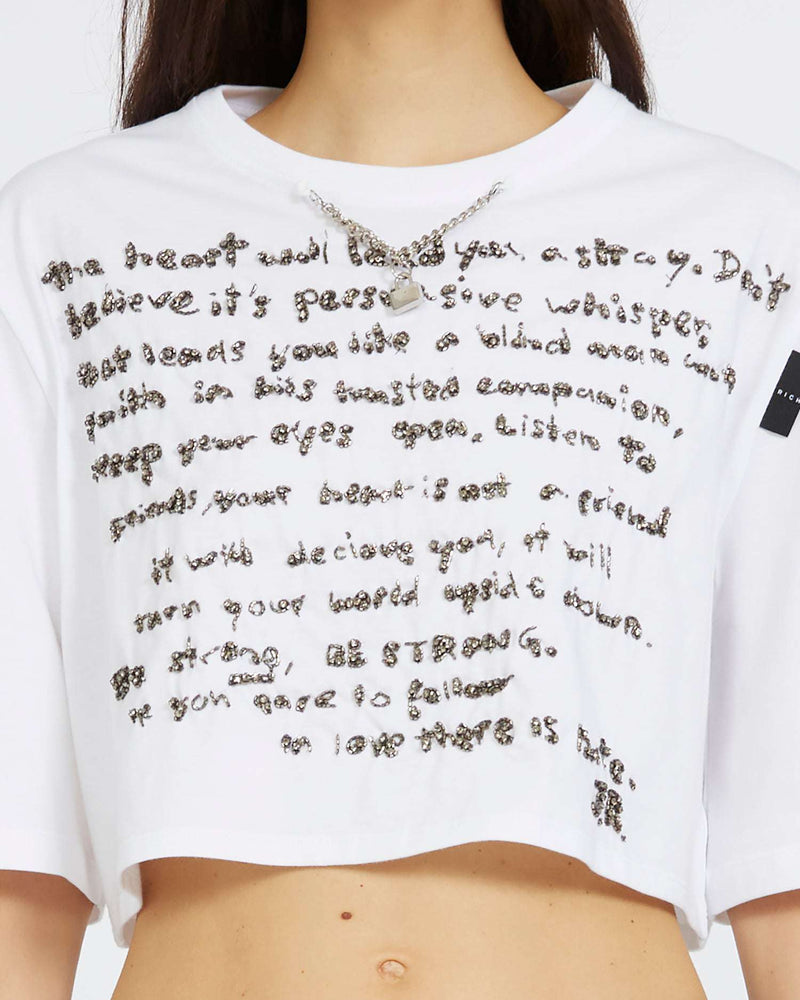 the heart will lead you astray. Don't
believe it's persuasive whisper,
that leads you like a blind man
faith in his trusted companion,
keep your eyes open. Listen to
Friends, your heart is not a friend
it will decieve you, it will
turn your world upside down.
Be strong, BE STRONG.
and
if you dare to follow
in love there is hate.
RICH